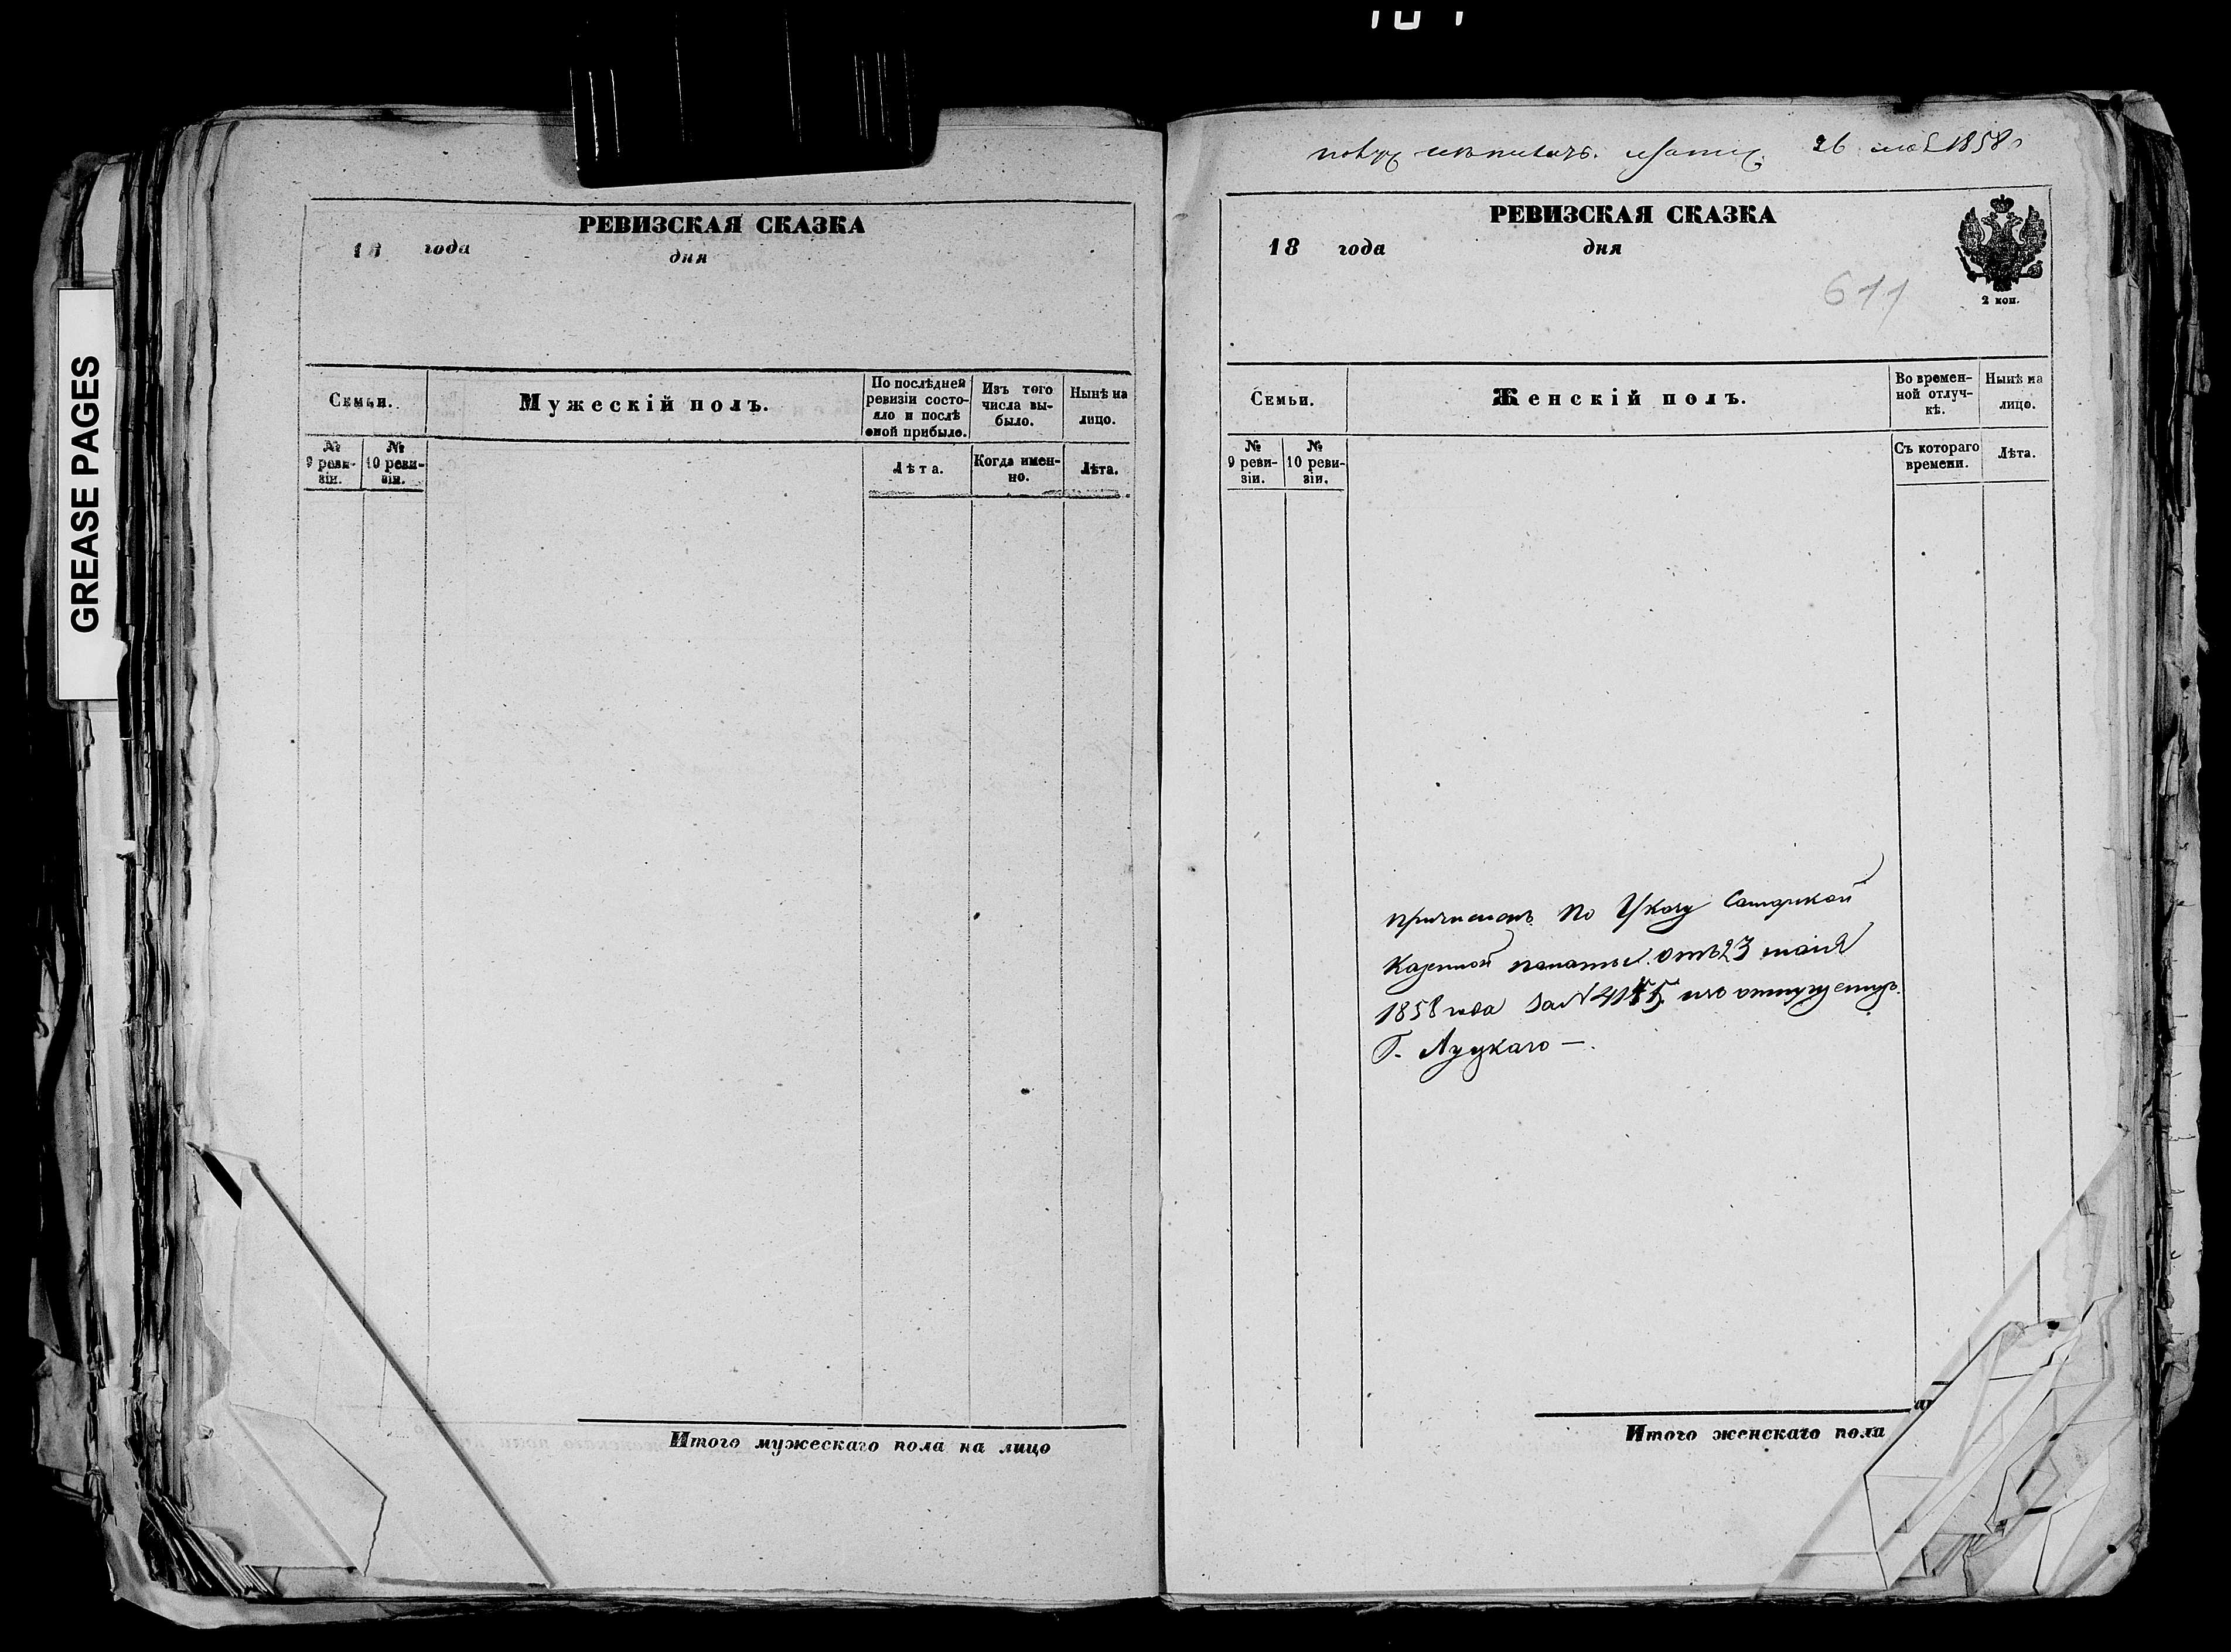 GREASE PAGES
РЕВИЗСКАЯ СКАЗКА
18 года дня
Семьи.
Мужескій полъ.
По послѣдней ревизіи состо-
яло и послѣ оной прибыло.
Изъ того числа вы-
было.
Нынѣ на лицо.
№ 9 реви-
зіи.
№ 10 реви-
зіи.
Лѣта.
Когда имен-
но.
Лѣта.
Итого мужескаго пола на лицо
26 маія 1858
РЕВИЗСКАЯ СКАЗКА
18 года дня
611
2 коп.
Семьи.
Женскій полъ.
Во времен-
ной отлуч-
кѣ.
Нынѣ на лицо.
№ 9 реви-
зіи.
№ 10 реви-
зіи.
Съ котораго времени.
Лѣта.
по Указу Самарской
Казенной палаты отъ 23 маія
1858 года за №
Г. Луцкаго —
Итого женскаго пола